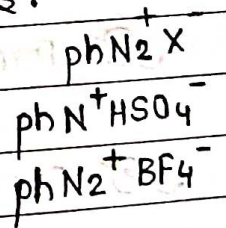 phN2⁺X
phN⁺HSO4⁻
phN2⁺BF4⁻